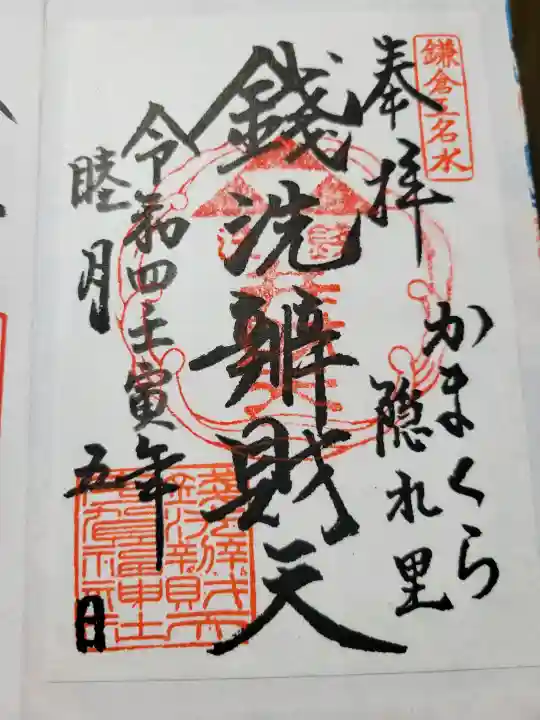 鎌倉五名水
奉拝
かまくら
隠れ里
銭洗辨財天
令和四壬寅年
睦月五日